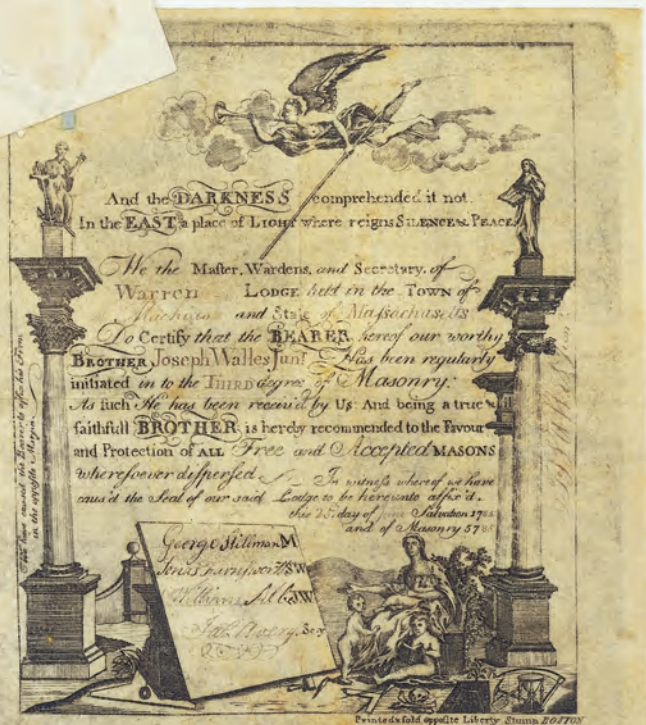 And the DARKNESS comprehended it not.
In the EAST a place of LIGHT where reigns SILENCE & PEACE
We the Maſter, Wardens, and Secretary, of
Warren LODGE held in the TOWN of
Machias and State of Maſsachuſetts
Do Certify that the BEARER hereof our worthy
BROTHER Joseph Walles Junr Has been regularly
initiated in to the THIRD degree of Masonry:
As ſuch He has been receiv'd by Us: And being a true &
faithfull BROTHER is hereby recommended to the Favour
and Protection of ALL Free and Accepted MASONS
whereſoever diſpersed In witneſs whereof we have
caus'd the Seal of our said Lodge to be hereunto affix'd,
this 25 day of June Salvation 178
and of Masonry 578
George Stillman M
SW
William JW
Secy
We have caused the Bearer to affix his Firm
in the oppoſite Margin.
Printed & ſold oppoſite Liberty Stump BOSTON